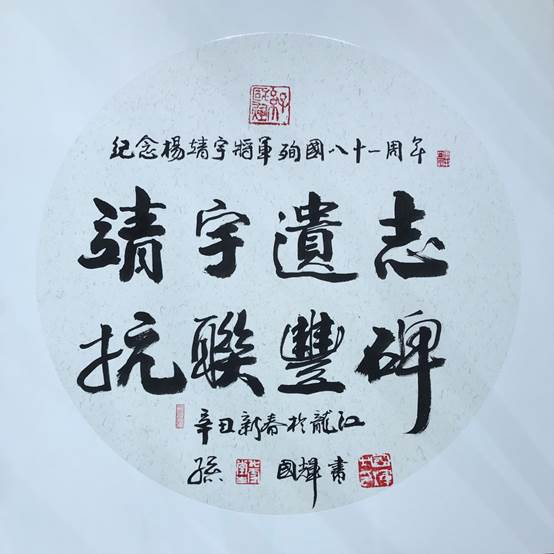 纪念楊靖宇將軍殉國八十一周年
靖宇遺志
抗聯豐碑
辛丑新春於龍江
孫國輝書